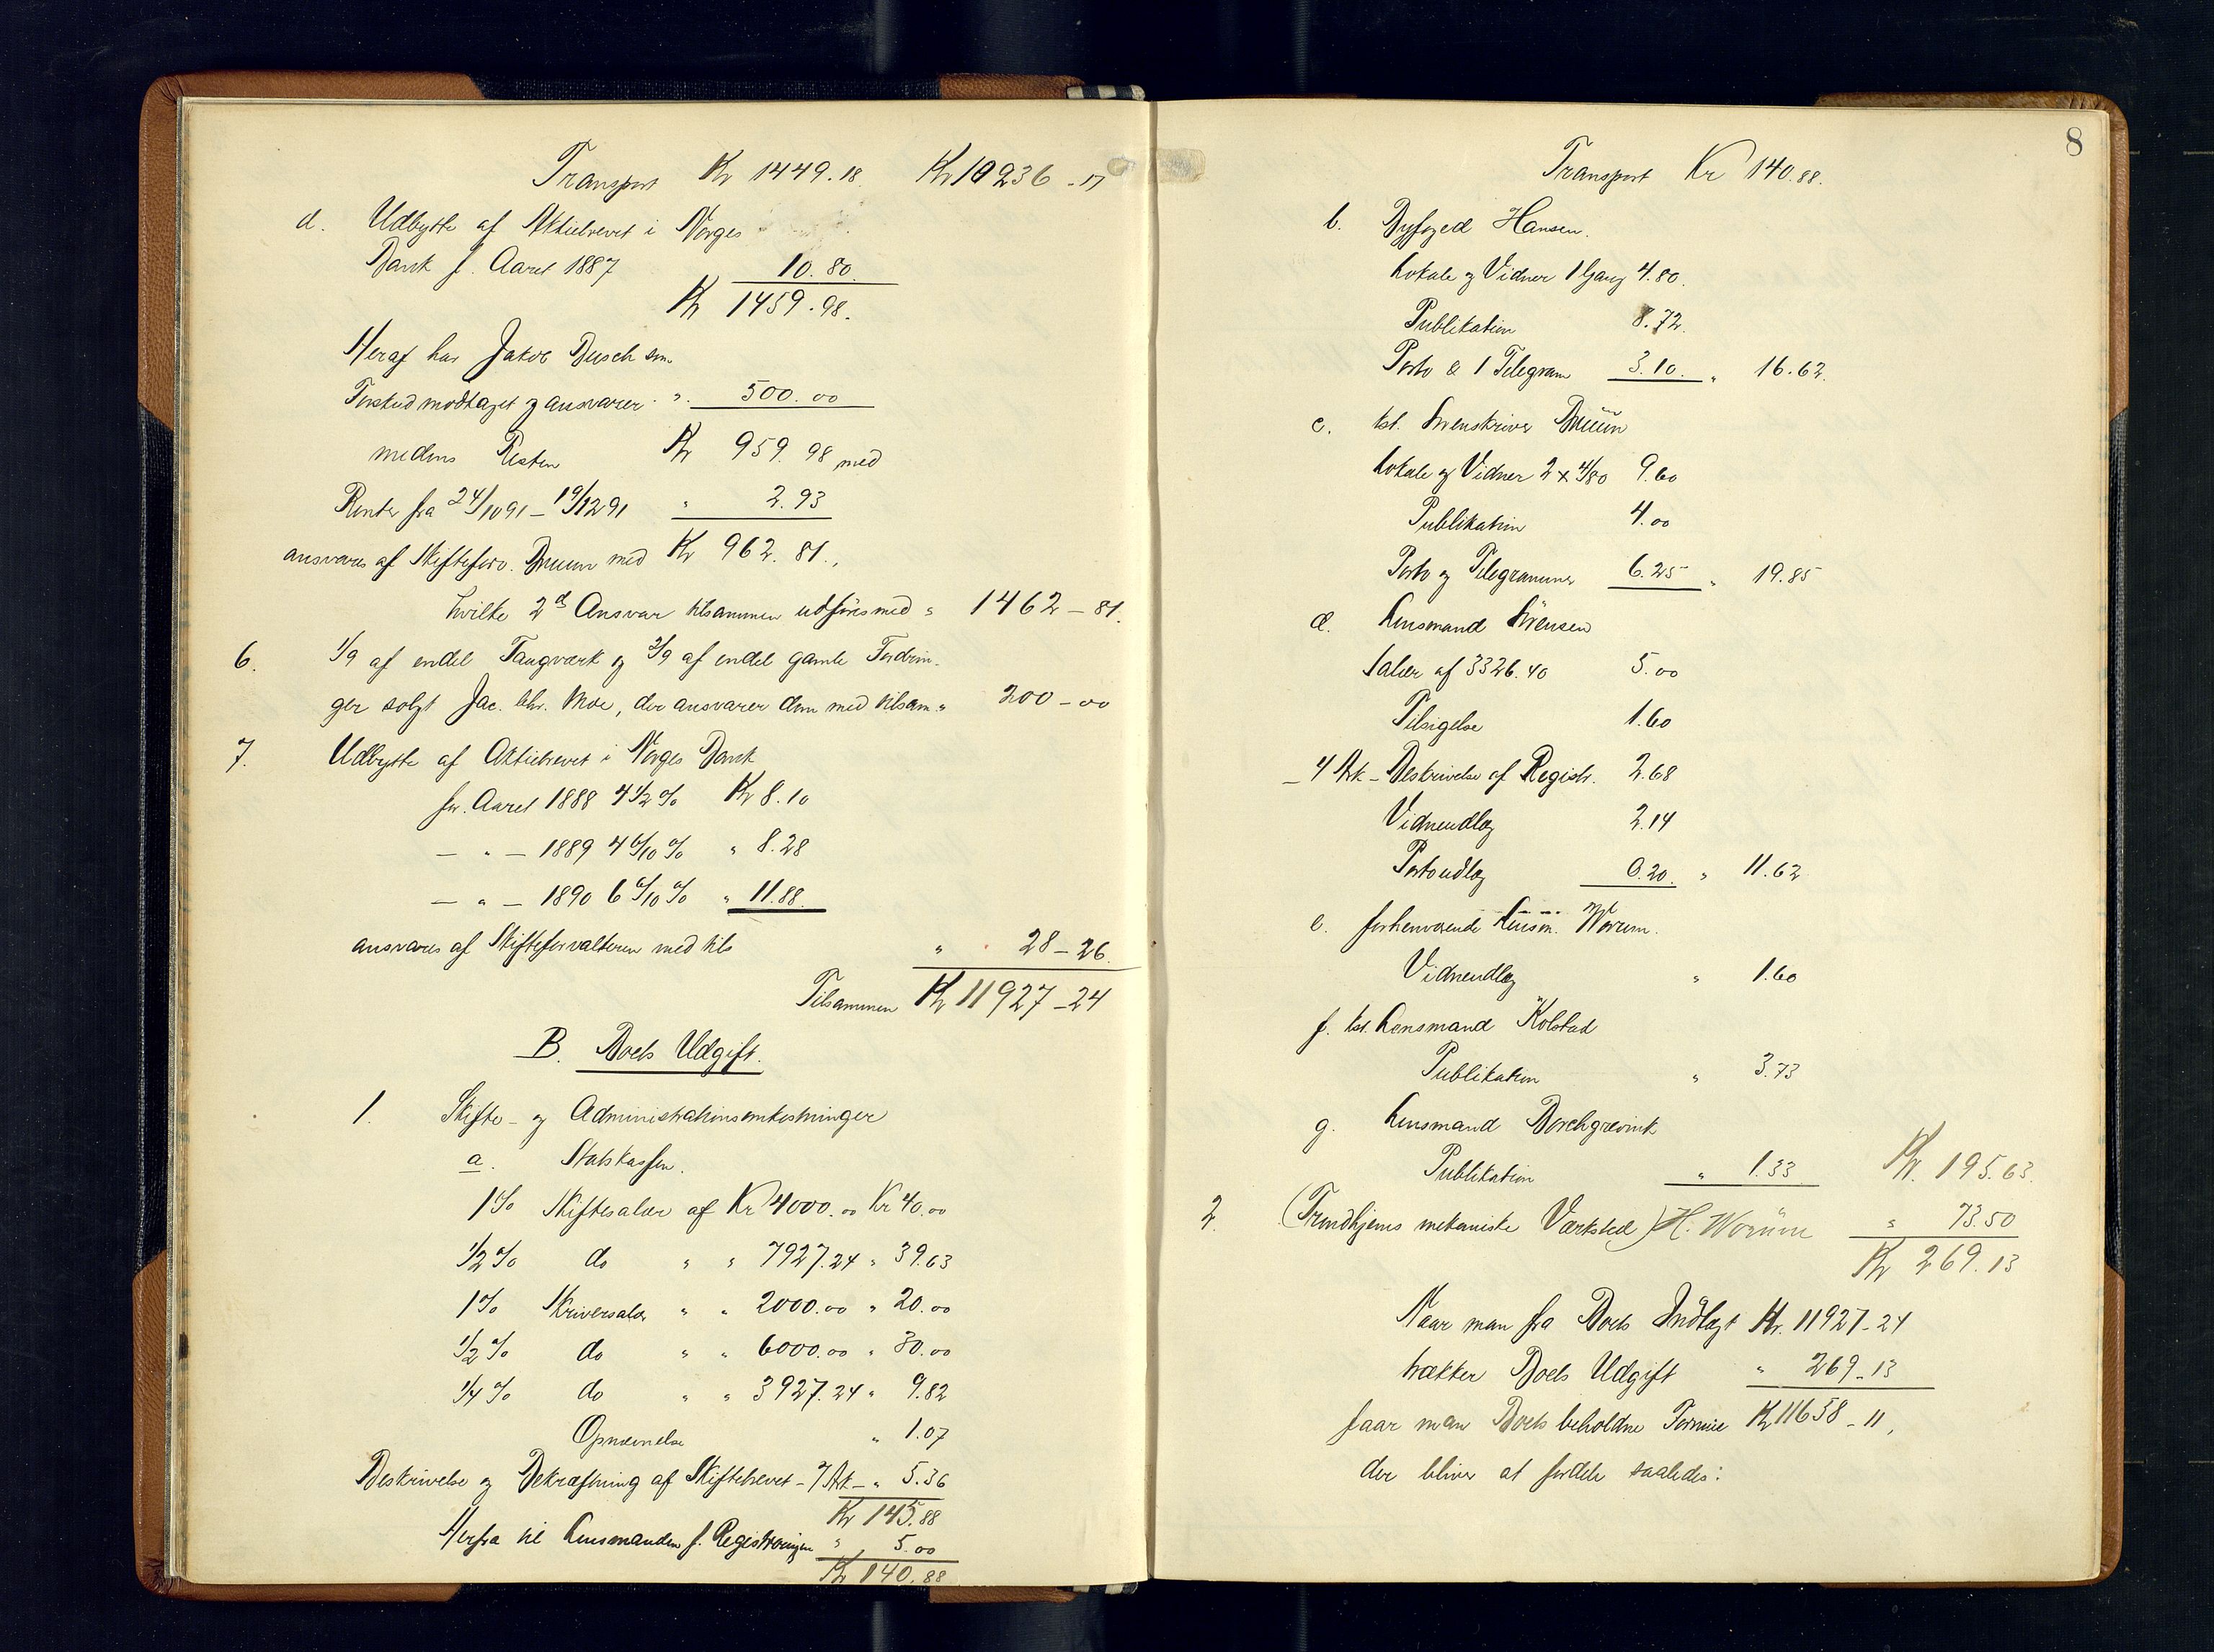 Transport Kr 1449.18. Kr 10236-17
d. Udbytte af Aktiebrevet i Norges
Bank f. Aaret 1887 10.80.
Kr 1459.98.
Heraf har Jakob Busch som
Forskud modtaget og ansvarer " 500.00
medens Resten Kr 959.98 med
Renter fra 24/10 91 - 19/12 91 " 2.93
ansvares af Skifteforv. Bruun med Kr 962.81.,
hvilke 2de Ansvar tilsammen udføres med " 1462-81.
6. 1/9 af endel Taugværk og 2/9 af endel gamle Fordrin-
ger solgt Jac. Chr. Moe, der ansvarer dem med tilsam. " 200-00
7. Udbytte af Aktiebrevet i Norges Bank
for Aaret 1888 4 1/2 % Kr 8.10
— " — 1889 4 6/10 % " 8.28
— " — 1890 6 6/10 % " 11.88.
ansvares af Skifteforvalteren med tils " 28-26.
Tilsammen Kr 11927-24
B. Boets Udgift.
1. Skifte- og Administrationsomkostninger
a. Statskassen.
1 % Skiftesalær af Kr 4000.00 Kr 40.00
1/2 % do " " 7927.24 " 39.63
1 % Skriversalær " " 2000.00 " 20.00
1/2 % do " " 6000.00 " 30.00
1/4 % do " " 3927.24 " 9.82
Opnævnelse " 1.07
Beskrivelse og Bekræftning af Skiftebrevet - 7 Ark - " 5.36
Kr 145.88
Herfra til Lensmanden f. Registreringen " 5.00
Kr 140.88
8
Transport Kr 140.88.
b. Byfoged Hansen.
Lokale og Vidner 1 Gang 4.80.
Publikation 8.72.
Porto & 1 Telegram 3.10. " 16.62.
c. kst. Sorenskriver Bruun
Lokale og Vidner 2 x 4/80 9.60
Publikation 4.00
Porto og Telegrammer 6.25 " 19.85
d. Lensmand Sørensen
Salær af 3326.40 5.00
Tilsigelse 1.60
- 4 Ark - Beskrivelse af Registr. 2.68
Vidneudlæg 2.14
Portoudlæg 0.20. " 11.62
e. forhenværende Lensm. Worum.
Vidneudlæg " 1.60
f. kst. Lensmand Kolstad
Publikation " 3.73
g. Lensmand Borchgrevink
Publikation " 1.33 Kr. 195.63.
2. (Trondhjems mekaniske Værksted) H. Worum " 73.50
Kr 269.13
Naar man fra Boets Indtægt Kr. 11927-24
trækker Boets Udgift " 269-13
faar man Boets beholdne Formue Kr 11658-11,
der bliver at fordele saaledes: